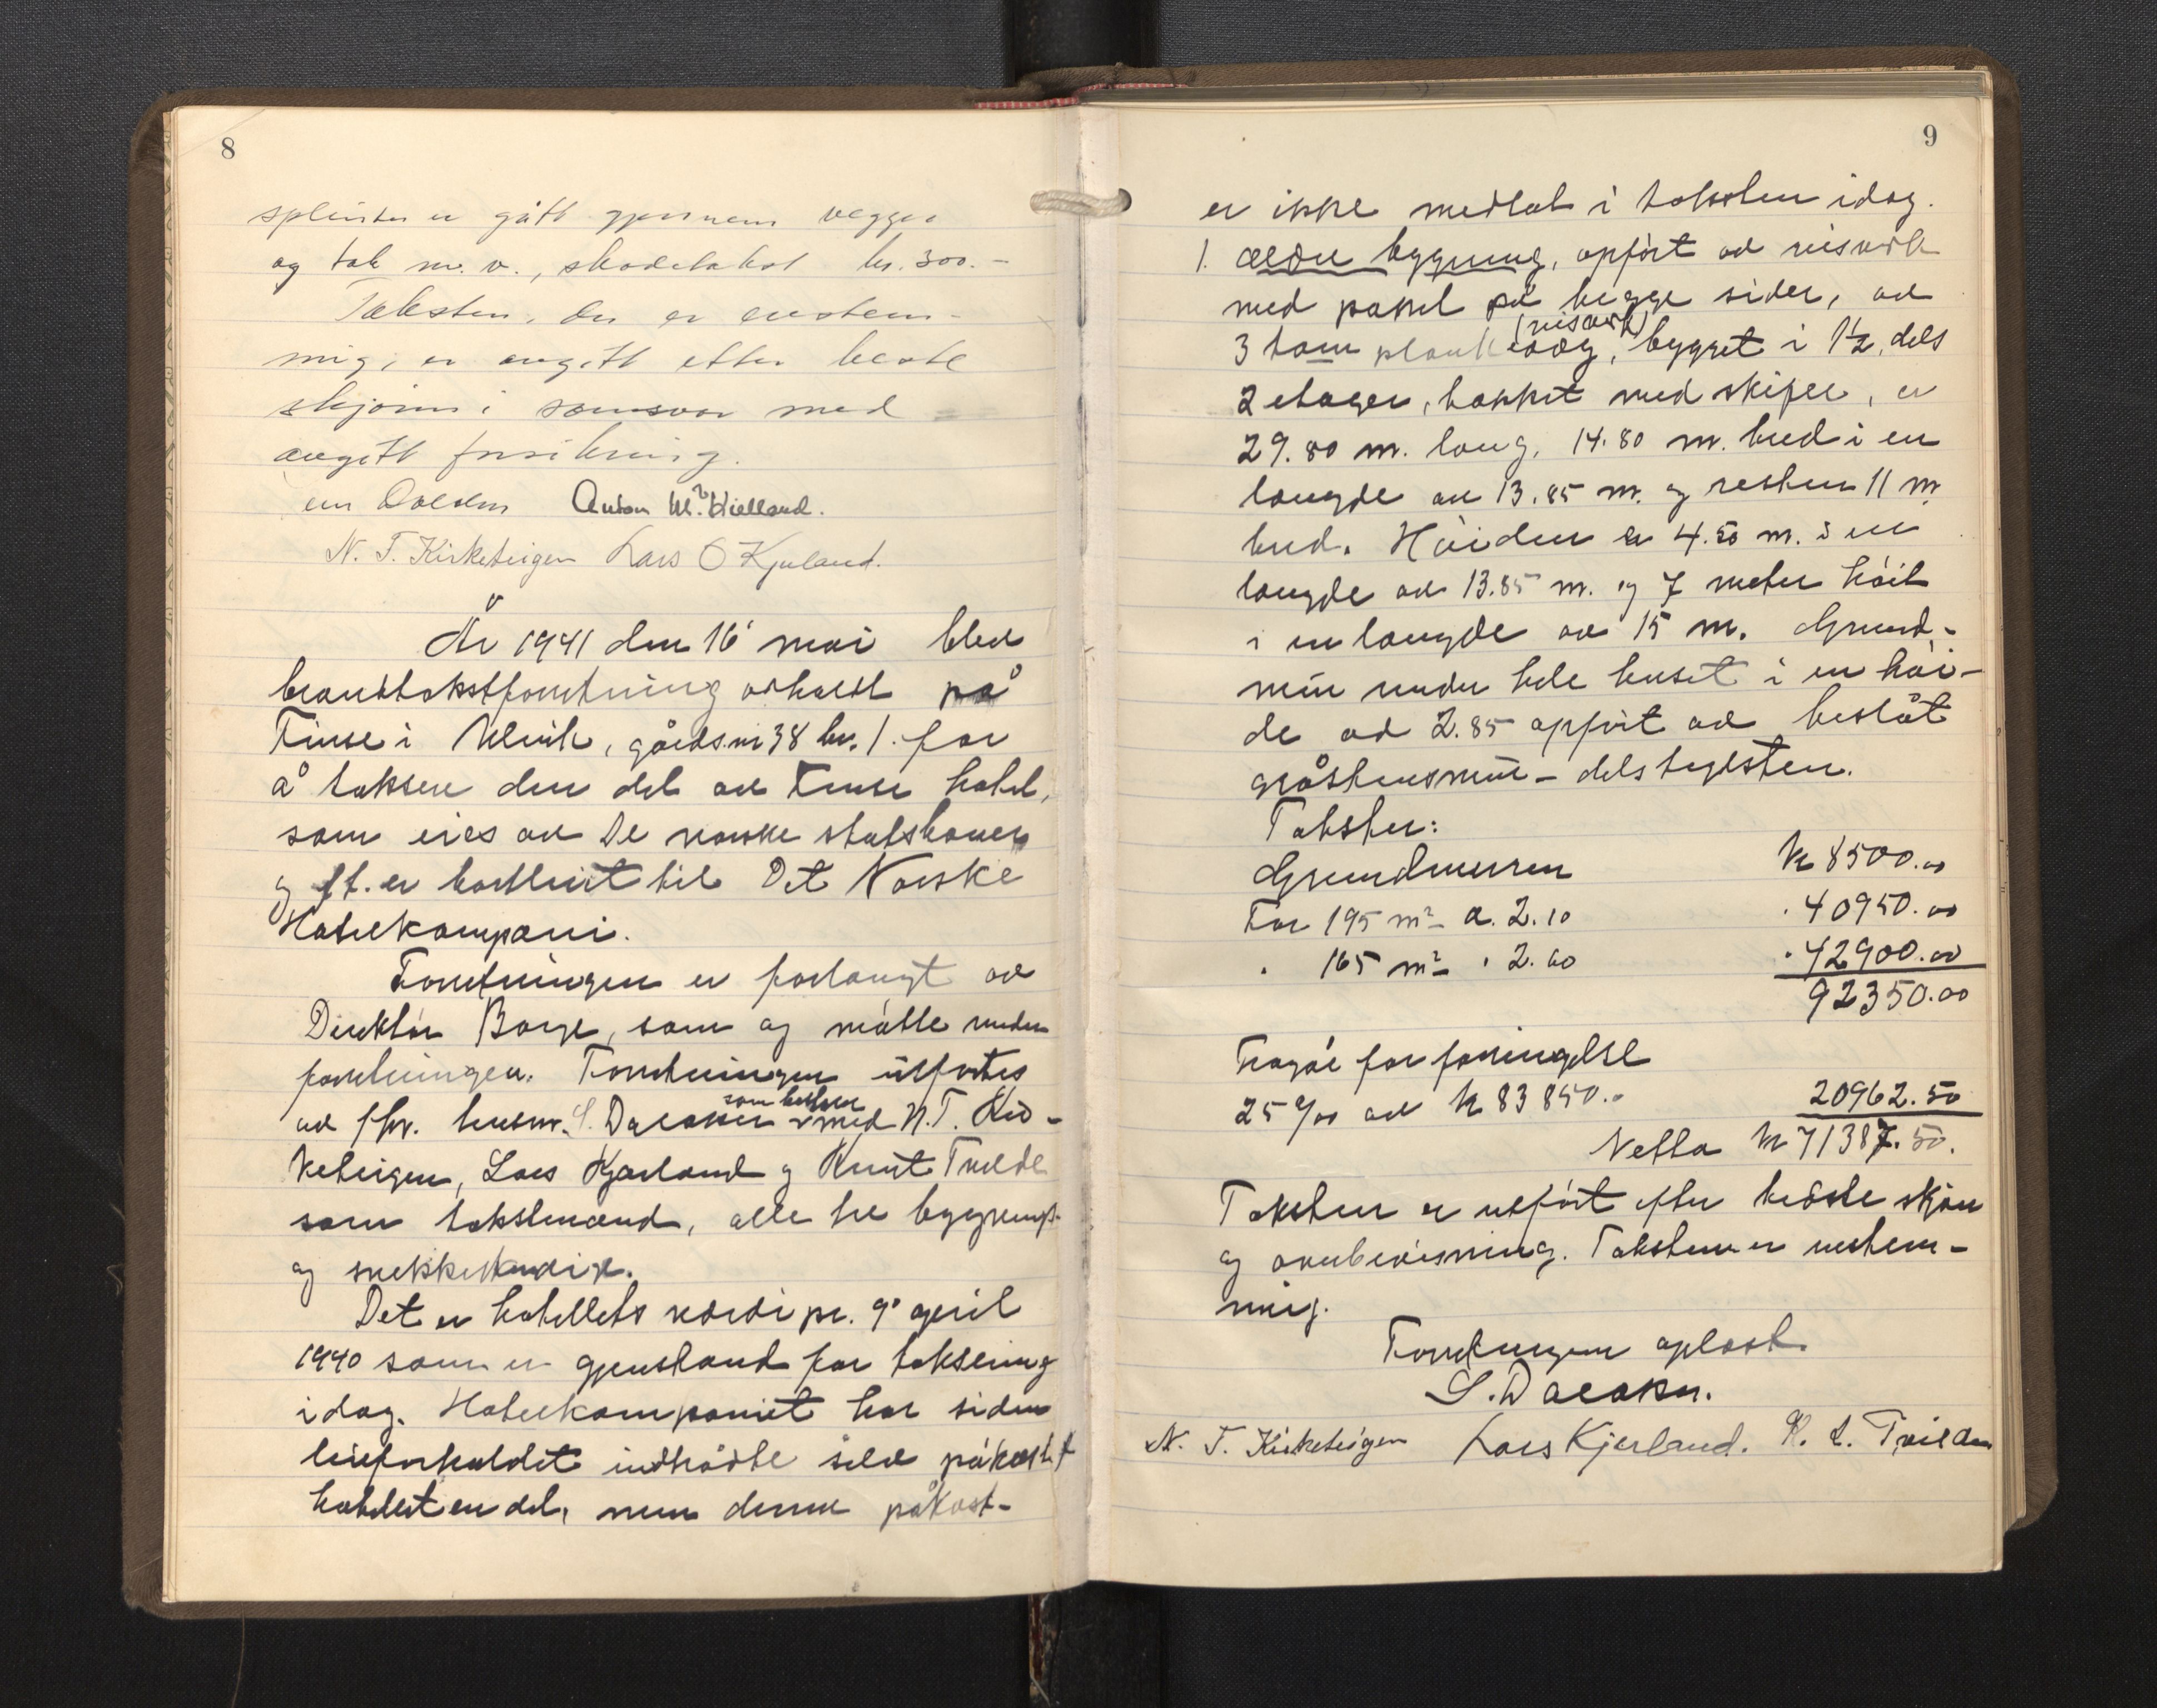 8
splinter er gått gjennem vegger
og tak m.v., skadetakst kr. 300.-
Taksten, der er enstem-
mig, er avgitt efter beste
skjønn i samsvar med
avgitt forsikring.
Anton M. Kielland.
N. T. Kirketeigen Lars O Kjerland.
År 1941 den 16' mai blev
branntakstforretning avholdt på
Finse i Ulvik, gårdsnr 38 br. 1. for
å taksere den del av Finse hotel,
som eies av De norske statsbaner
og f.t. er bortleiet til Det Norske
Hotelkompani.
Forretningen er forlangt av
Direktør Borge, som og møtte under
forretningen. Forretningen utførtes
som bestyrer
av fhv. lensm. S. Dalaker med N.T. Kir-
keteigen, Lars Kjerland og Knut Tveide
som takstmænd, alle tre bygnings-
og snekkerkyndige.
Det er hotellets verdi pr. 9' april
1940 som er gjenstand for taksering
idag. Hotelkompaniet har siden
leieforholdet indtrådte selv påkostet
hotellet en del, men denne påkost-
9
er ikke medtat i taksten idag.
1. ældre bygning, opført av reisverk
med panel på begge sider, av
(reisverk)
3 tom plankevæg, bygget i 1½, dels
2 etager, takket med skifer, er
29.80 m. lang, 14.80 m. bred i en
længde av 13.85 m. og resten 11 m.
bred. Høiden er 4.50 m. i en
længde av 13.85 m. og 7 meter høit
i en længde av 15 m. Grund-
mur under hele huset i en høi-
de av 2.85 opført av beslåt
gråstensmur - dels teglsten.
Taksten:
Grundmuren kr 8500.00
For 195 m² a. 2.10 . 40950.00
. 165 m² . 2.60 . 42900.00
92350.00
Fragår for forringelse
25 % av kr 83850.- 20962.50
Netto kr 71387.50.
Taksten er utført efter bedste skjøn
og overbevisning. Taksten er enstem-
mig.
Forretningen opløst.
S. Dalaker.
N. T. Kirketeigen Lars Kjerland. K. L. Tveiden